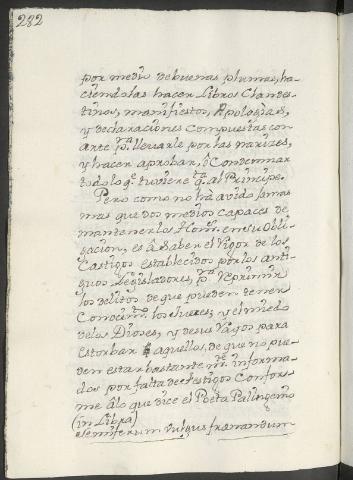 282
por medio de buenas plumas, ha-
ciendolas hacer Libros Clandes-
tinos, manifiestos, Apologias,
y declaraciones compuestas con
arte pª llevarle por las narizes,
y hacer aprobar, ò Condemnar
todo lo q.e tuviere q.e al Principe.
Pero como no hà avido jamas
mas que dos medios capaces de
mantener los Hom.s en su obli-
gacion, es à saber el Vigor de los
Castigos establecidos por los anti-
guos Legisladores, pª reprimir
los delitos de que pueden tener
Conocim.to los Jueces, y el miedo
de los Dioses, y de sus Rayos para
estorbar aquellos, de que no pue-
den estar bastante m.te informa-
dos por falta de testigos Confor-
me à lo que dice el Poeta Palingenio
(in Libra)
semiferum vulgus frænandum